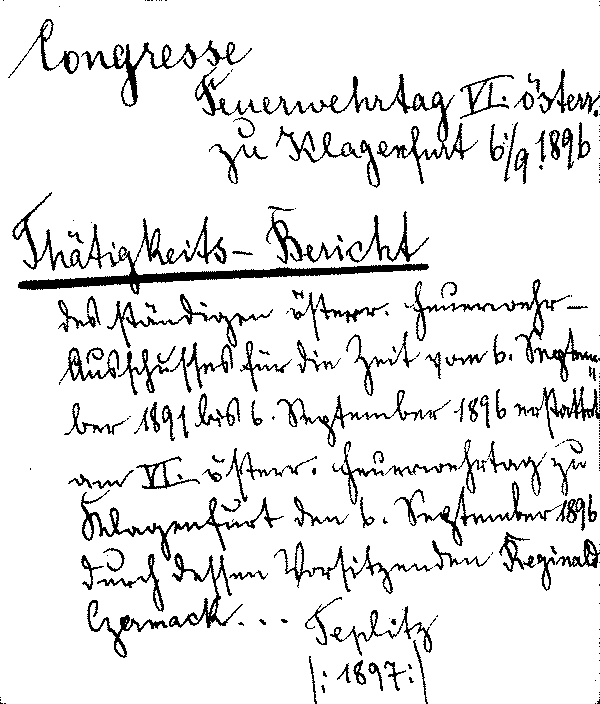 Congresse
Feuerwehrtag VI. österr.
zu Klagenfurt 6/9. 1896
Thätigkeits- Bericht
des ständigen österr. Feuerwehr-
Ausschusses für die Zeit vom 6. Septem-
ber 1891 bis 6. September 1896 erstattet
am VI. österr. Feuerwehrtag zu
Klagenfurt den 6. September 1896
durch dessen Vorsitzenden Reginald
Czermack...
Teplitz
|: 1897:|